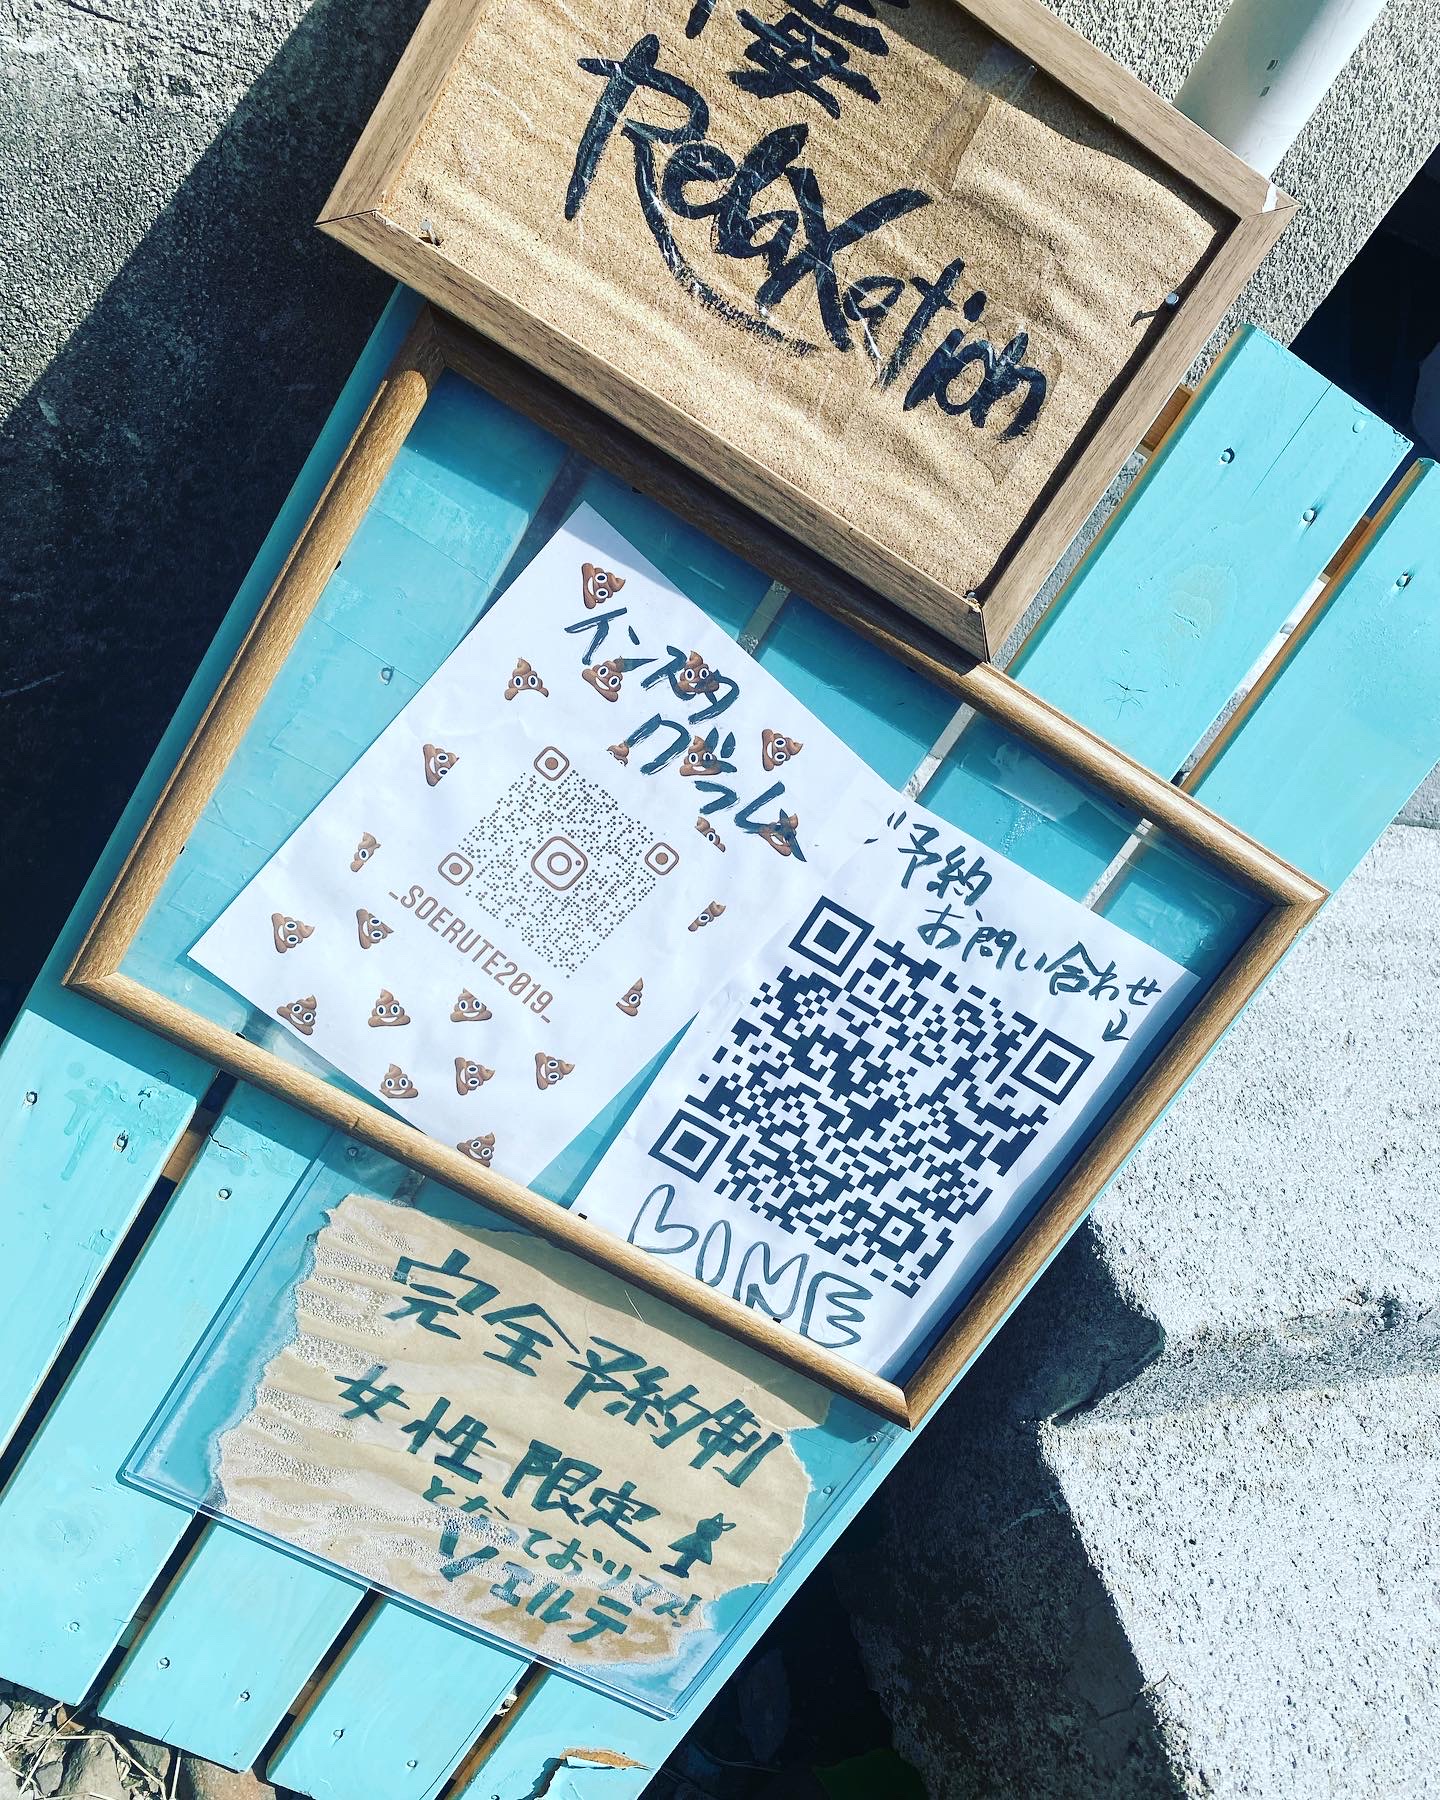 Relaxation
インスタ
グラム
_SOERUTE2019_
予約
お問い合わせ
LINE
完全予約制
女性限定
となっております!
ソエルテ